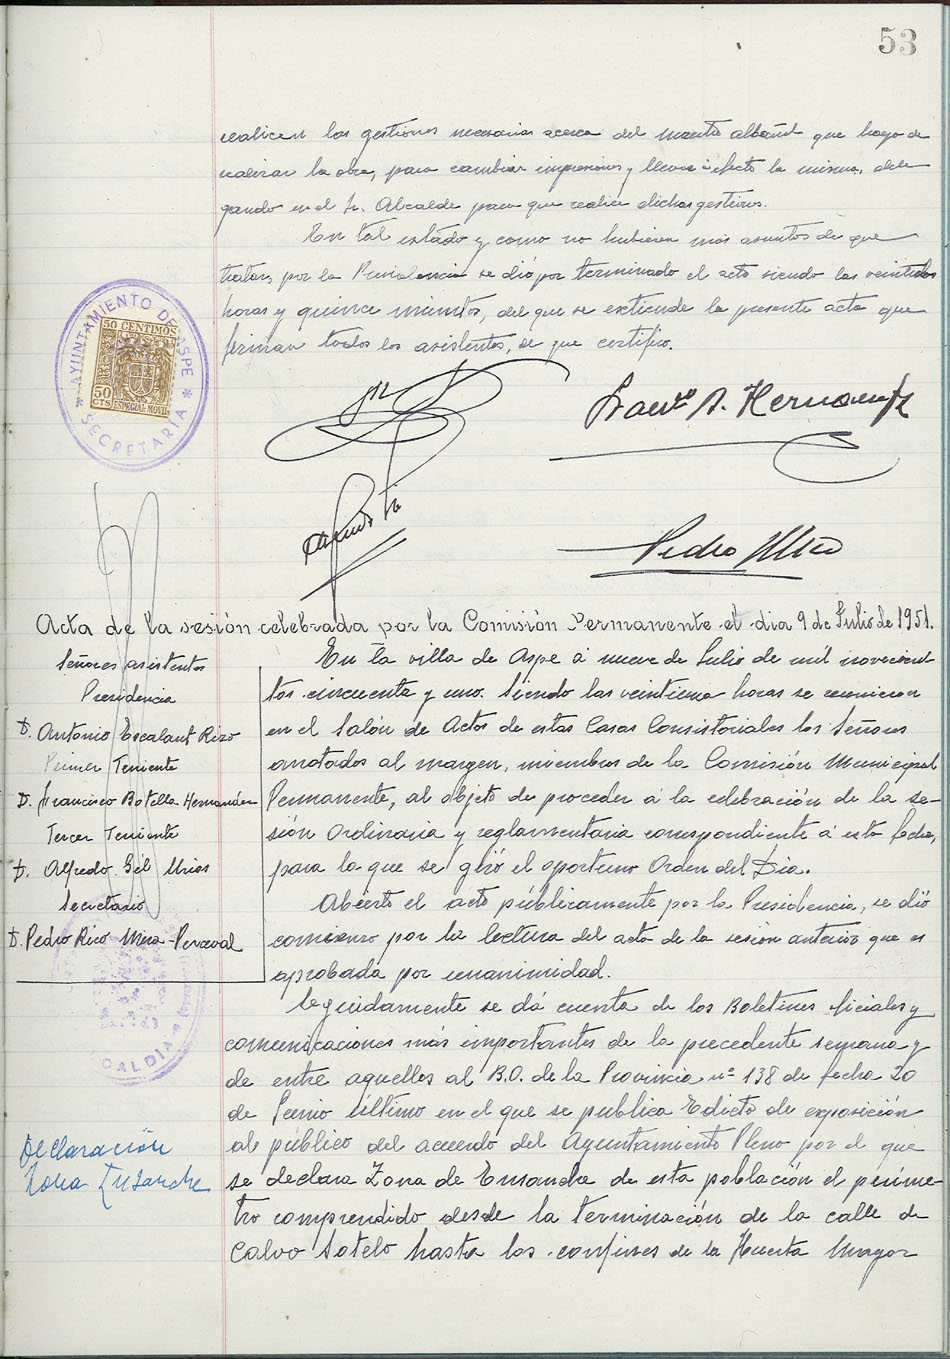 53
realicen las gestiones necesarias acerca del maestro albañil que haya de
realizar la obra, para cambiar impresiones y llevar a efecto la misma, dele
gando en el Sr. Alcalde para que realice dichas gestiones.
En tal estado y como no hubieren más asuntos de que
tratar, por la Presidencia se dió por terminado el acto siendo las veintidos
horas y quince minutos, del que se extiende la presente acta que
firman todos los asistentes, de que certifico.
AYUNTAMIENTO DE ASPE
SECRETARÍA
50 CENTIMOS
50
CTS
ESPECIAL MOVIL
Pedro Rico
Acta de la sesión celebrada por la Comisión Permanente el dia 9 de Julio de 1951.
Señores asistentes
Presidencia
D. Antonio Escalant Rizo
Primer Teniente
D. Francisco Botella Hernandez
Tercer Teniente
D. Alfredo Gil Mías
Secretario
D. Pedro Rico Mira-Perceval
En la villa de Aspe á nueve de Julio de mil novecien-
tos cincuenta y uno. Siendo las veintiuna horas se reunieron
en el Salón de Actos de estas Casas Consistoriales los Señores
anotados al margen, miembros de la Comisión Municipal
Permanente, al objeto de proceder á la celebración de la se-
sión ordinaria y reglamentaria correspondiente á esta fecha,
para la que se giró el oportuno Orden del Dia.
Abierto el acto públicamente por la Presidencia, se dió
comienzo por la lectura del acta de la sesión anterior que es
aprobada por unanimidad.
Seguidamente se dá cuenta de los Boletines ficiales y
comunicaciones más importantes de la precedente semana y
de entre aquellos al B.O. de la Provincia nº 138 de fecha 20
de Junio último en el que se publica Edicto de exposición
al público del acuerdo del Ayuntamiento Pleno por el que
se declara Zona de Ensanche de esta población el períme-
tro comprendido desde la terminación de la calle de
Calvo Sotelo hasta los confines de la Huerta Mayor
Declaración
Zona Ensanche
ALCALDIA